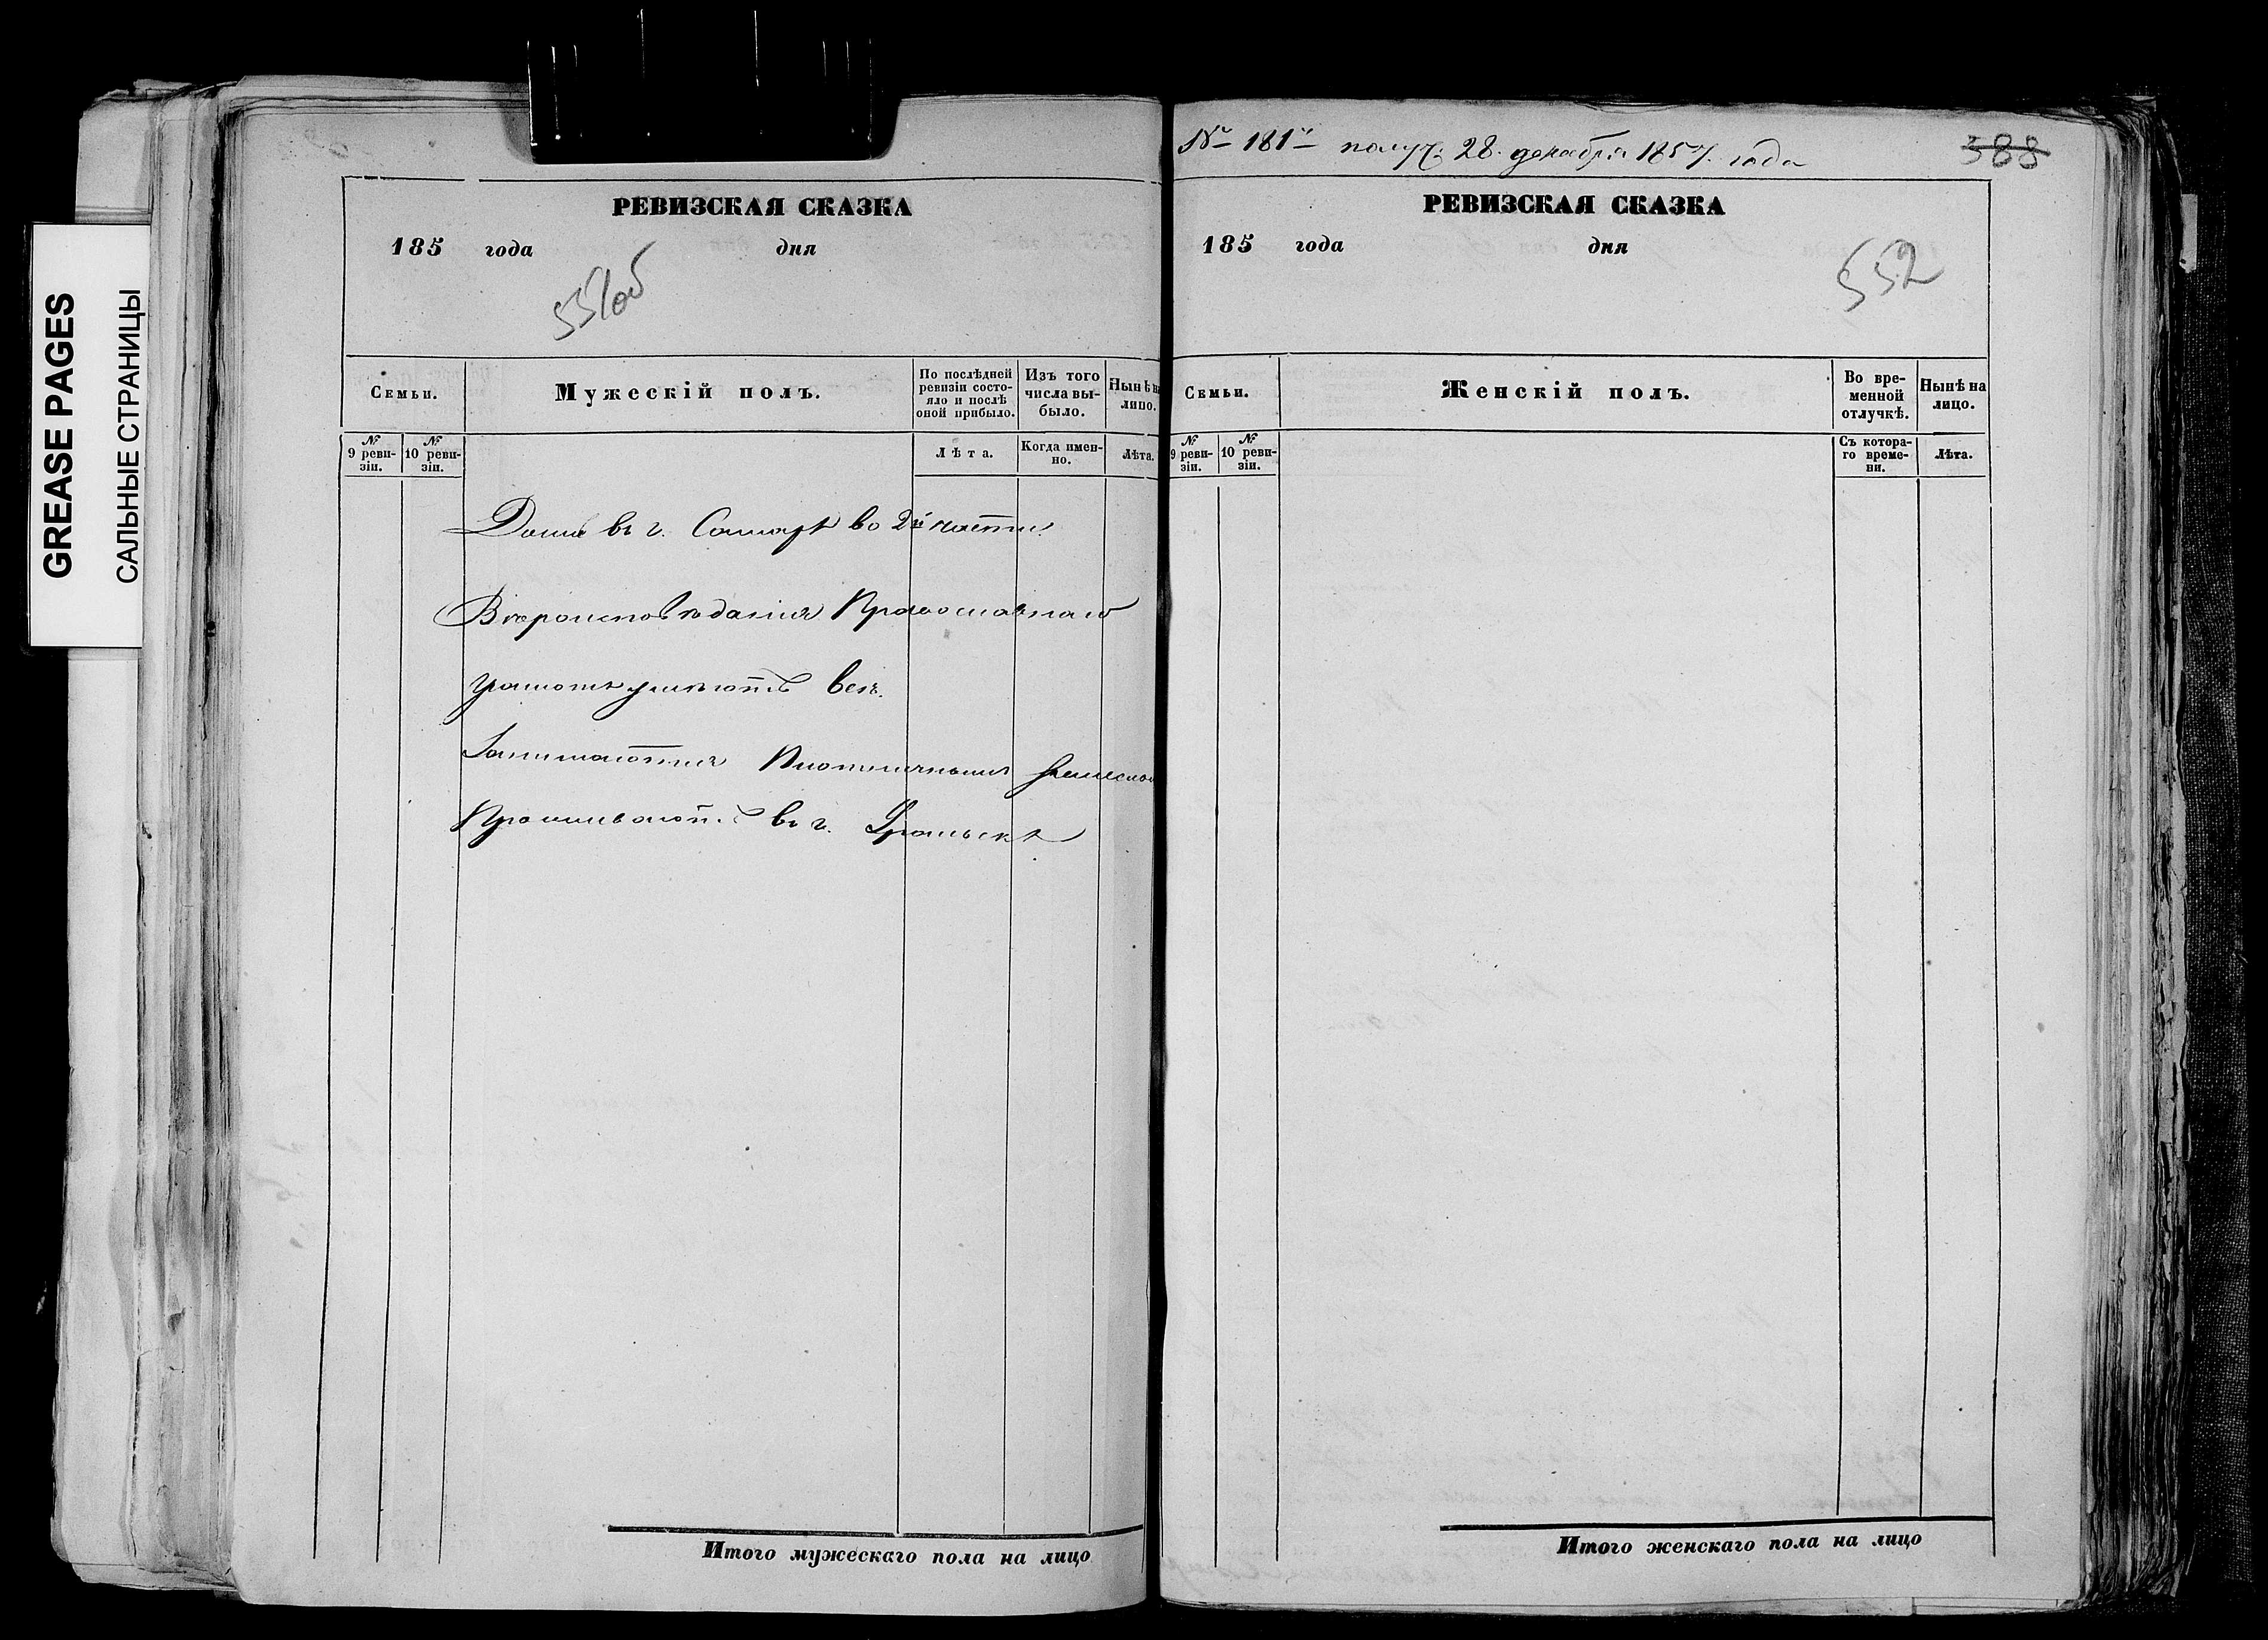 GREASE PAGES
САЛЬНЫЕ СТРАНИЦЫ
РЕВИЗСКАЯ СКАЗКА
185 года дня
551об
Семьи.
Мужескій полъ.
По послѣдней ревизіи состояло и послѣ оной прибыло.
Изъ того числа выбыло.
Нынѣ на лицо.
№ 9 ревизіи.
№ 10 ревизіи.
Лѣта.
Когда именно.
Лѣта.
Домъ въ г. Самарѣ во 2й части.
Вѣроисповѣданія Православнаго
грамотѣ умѣютъ всѣ.
Занимаются Плотничнымъ
Проживаютъ въ г. Уральскѣ
Итого мужескаго пола на лицо
№ 181й получ: 28. декабря 1857. года
388
РЕВИЗСКАЯ СКАЗКА
185 года дня
552
Семьи.
Женскій полъ.
Во временной отлучкѣ.
Нынѣ на лицо.
№ 9 ревизіи.
№ 10 ревизіи.
Съ котораго времени.
Лѣта.
Итого женскаго пола на лицо